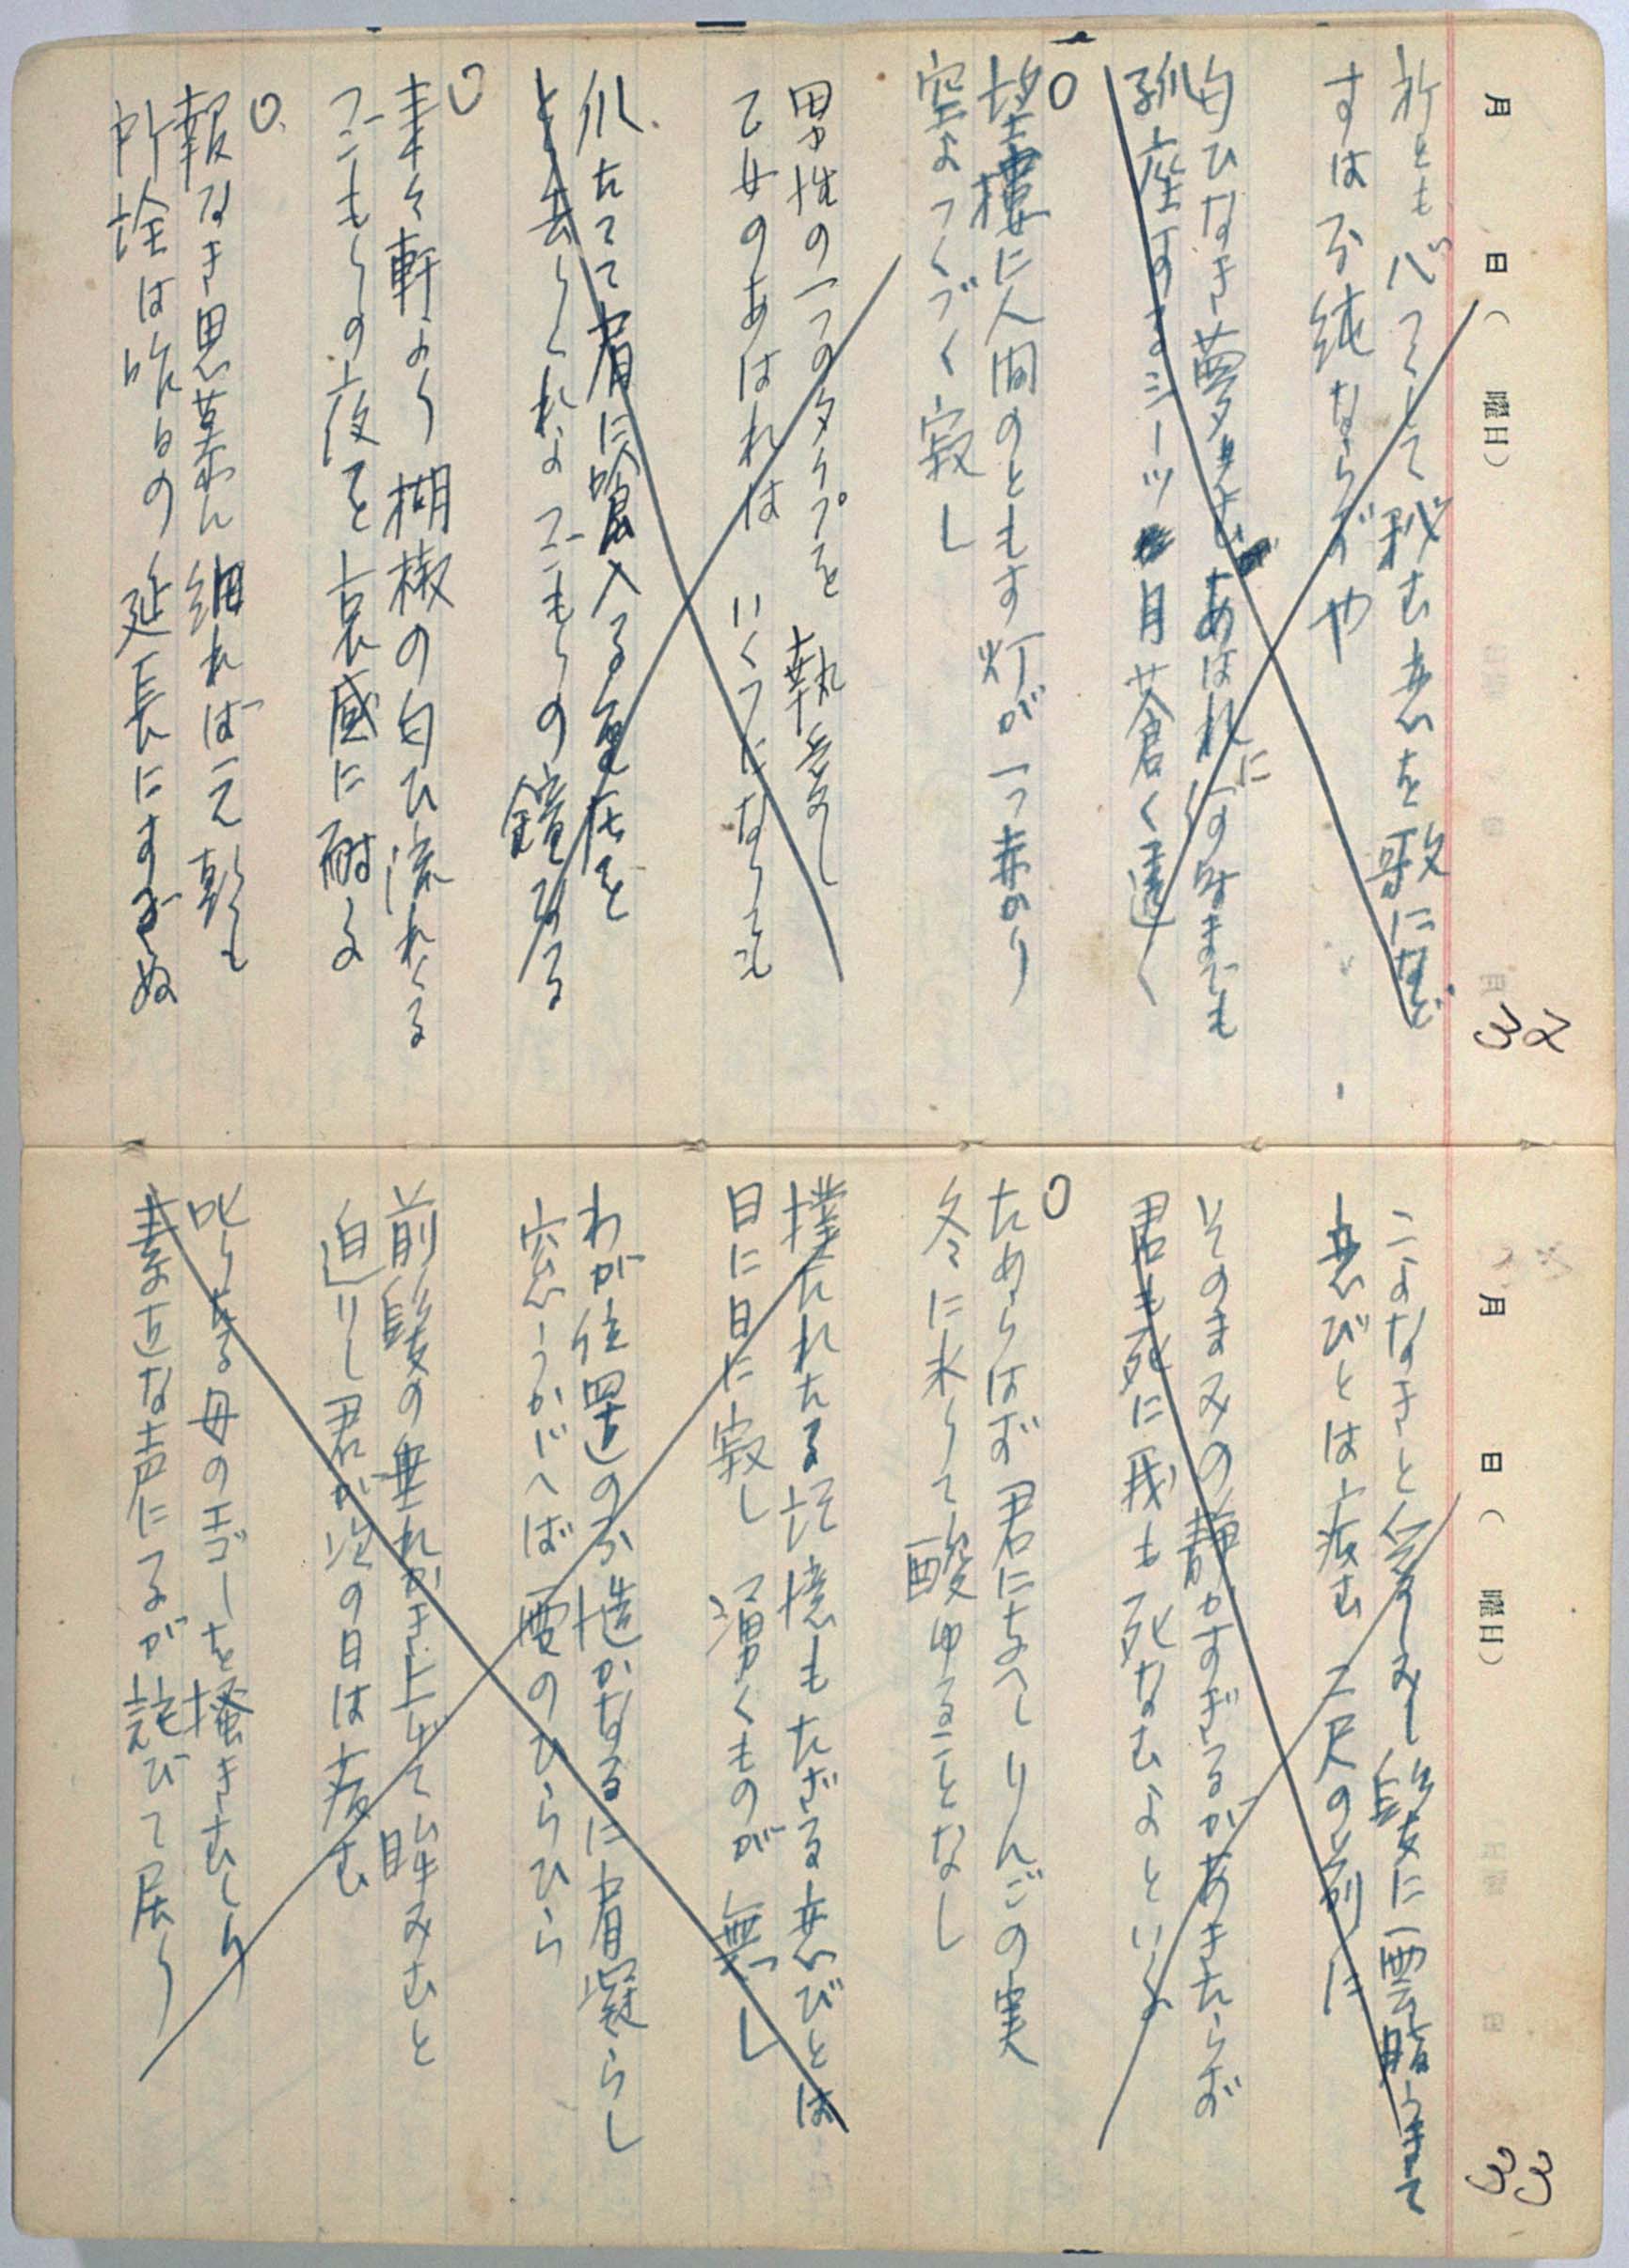 月 日( 曜日)
32
祈ともがつくして秘む恋を歌になど
すは不純ならずや
匂ひなき夢更にあはれに何時までも
孤座するシーツ月蒼く透く
○
望楼に人間のともす灯が一つ赤かり
空よつくづく寂し
男性の一つのタイプを執念し
乙女のあはれはいくつになりても
爪たてて脣に喰入る
と去りくれよコンもりの鐘なる
○
軒より胡椒の匂ひ流れくる
コンもりの夜を哀感に耐よ
○
報なき思慕ん細れば云え
所詮は昨日の延長にすぎぬ
月 日( 曜日)
33
こよなきと髪に雲脂うきて
恋びとは病む 二尺の前に
そのまみの静かすぎるがあきたらず
君も死に我も死なむよといくよ
○
ためらはず君にあたへしりんごの実
冬に来りて酸ゆることなし
撲たれたる記憶もたざる恋びとは
日に日に寂し 湧くものが無し
わが位置の不慥かなるに脣凝らし
窓うかがへば雪のひらひら
前髪の垂れかき上げて眸みむと
迫りし君が次の日は病む
叱りゐる母のエゴーを掻きむしり
素直な声にてるが詫びて居り